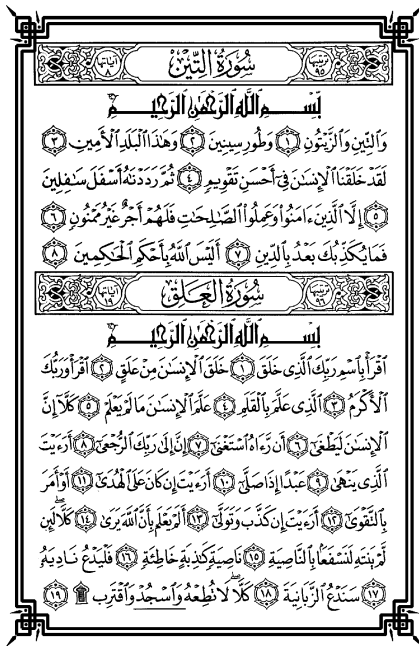 ترتيبها ٩٥ سُورَةُ التِّينِ آياتها ٨
بِسْمِ اللَّهِ الرَّحْمَٰنِ الرَّحِيمِ
وَٱلتِّينِ وَٱلزَّيْتُونِ ١ وَطُورِ سِينِينَ ٢ وَهَٰذَا ٱلْبَلَدِ ٱلْأَمِينِ ٣
لَقَدْ خَلَقْنَا ٱلْإِنسَٰنَ فِىٓ أَحْسَنِ تَقْوِيمٍ ٤ ثُمَّ رَدَدْنَٰهُ أَسْفَلَ سَٰفِلِينَ
٥ إِلَّا ٱلَّذِينَ ءَامَنُوا۟ وَعَمِلُوا۟ ٱلصَّٰلِحَٰتِ فَلَهُمْ أَجْرٌ غَيْرُ مَمْنُونٍ ٦
فَمَا يُكَذِّبُكَ بَعْدُ بِٱلدِّينِ ٧ أَلَيْسَ ٱللَّهُ بِأَحْكَمِ ٱلْحَٰكِمِينَ ٨
ترتيبها ٩٦ سُورَةُ العَلَقِ آياتها ١٩
بِسْمِ اللَّهِ الرَّحْمَٰنِ الرَّحِيمِ
ٱقْرَأْ بِٱسْمِ رَبِّكَ ٱلَّذِى خَلَقَ ١ خَلَقَ ٱلْإِنسَٰنَ مِنْ عَلَقٍ ٢ ٱقْرَأْ وَرَبُّكَ
ٱلْأَكْرَمُ ٣ ٱلَّذِى عَلَّمَ بِٱلْقَلَمِ ٤ عَلَّمَ ٱلْإِنسَٰنَ مَا لَمْ يَعْلَمْ ٥ كَلَّآ إِنَّ
ٱلْإِنسَٰنَ لَيَطْغَىٰٓ ٦ أَن رَّءَاهُ ٱسْتَغْنَىٰٓ ٧ إِنَّ إِلَىٰ رَبِّكَ ٱلرُّجْعَىٰٓ ٨ أَرَءَيْتَ
ٱلَّذِى يَنْهَىٰ ٩ عَبْدًا إِذَا صَلَّىٰٓ ١٠ أَرَءَيْتَ إِن كَانَ عَلَى ٱلْهُدَىٰٓ ١١ أَوْ أَمَرَ
بِٱلتَّقْوَىٰٓ ١٢ أَرَءَيْتَ إِن كَذَّبَ وَتَوَلَّىٰٓ ١٣ أَلَمْ يَعْلَم بِأَنَّ ٱللَّهَ يَرَىٰ ١٤ كَلَّا لَئِن
لَّمْ يَنتَهِ لَنَسْفَعًۢا بِٱلنَّاصِيَةِ ١٥ نَاصِيَةٍ كَٰذِبَةٍ خَاطِئَةٍ ١٦ فَلْيَدْعُ نَادِيَهُۥ
١٧ سَنَدْعُ ٱلزَّبَانِيَةَ ١٨ كَلَّا لَا تُطِعْهُ وَٱسْجُدْ وَٱقْتَرِب ۩ ١٩